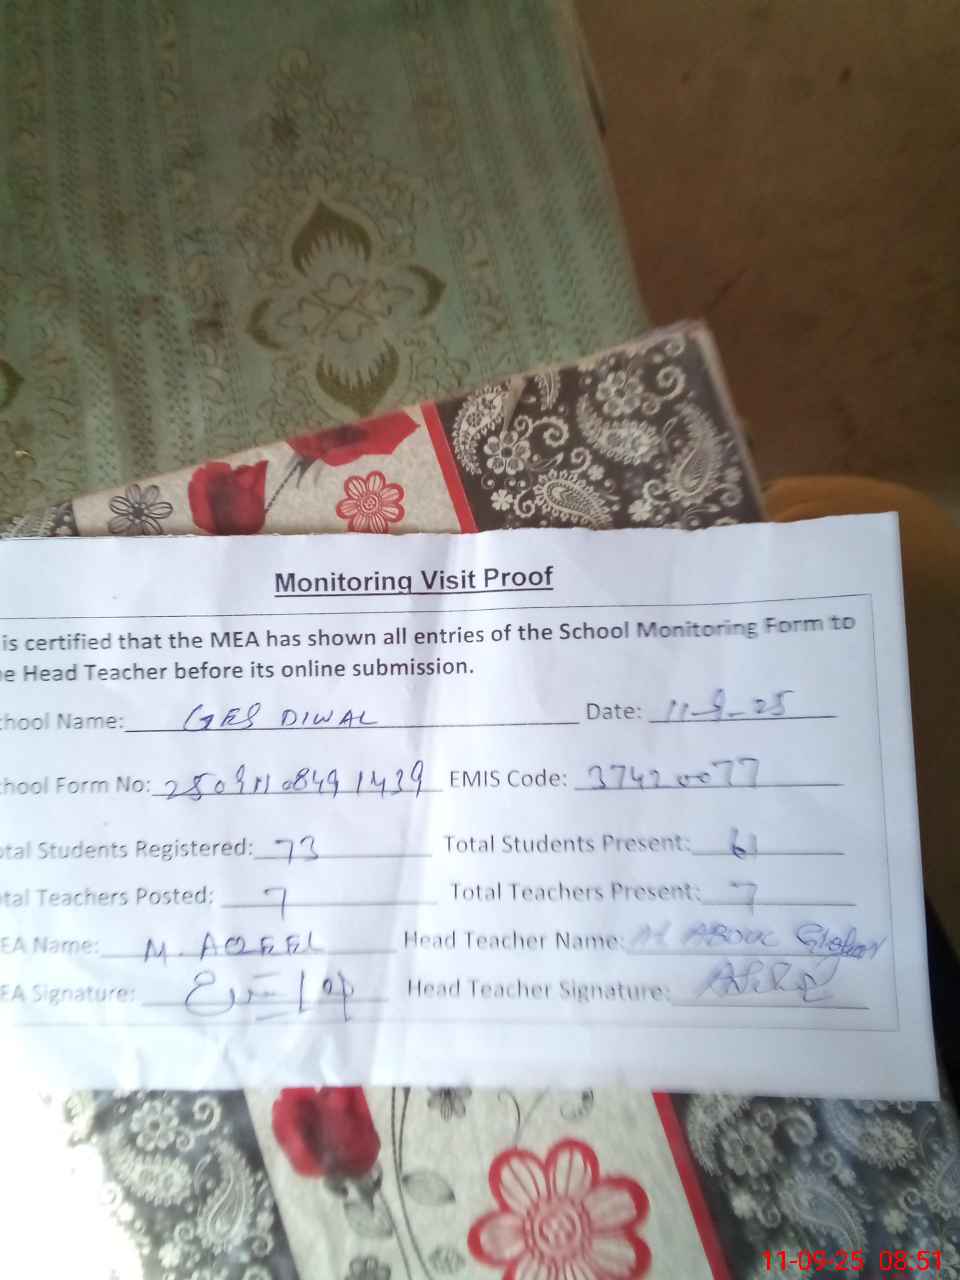 Monitoring Visit Proof
is certified that the MEA has shown all entries of the School Monitoring Form to
e Head Teacher before its online submission.
chool Name: GES DIWAL Date: 11-9-25
chool Form No: 25091108491439 EMIS Code: 37420077
otal Students Registered: 73 Total Students Present: 61
otal Teachers Posted: 7 Total Teachers Present: 7
EA Name: M. AQEEL Head Teacher Name: M ABDUL
EA Signature: Head Teacher Signature:
11-09-25 08:51